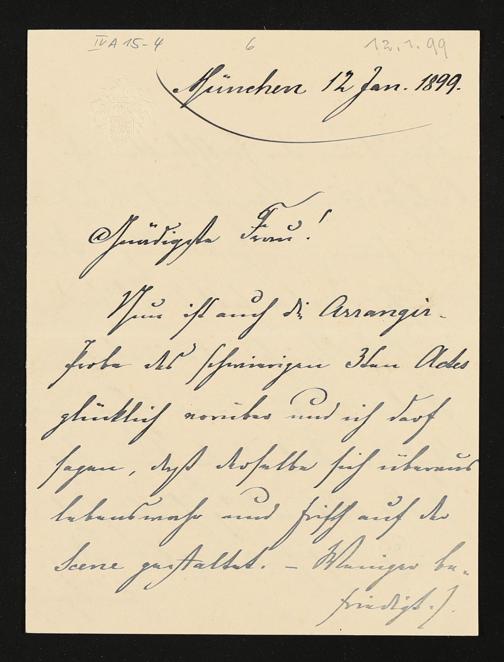 IVA 15-4 6 12.1.99
München 12 Jan. 1899.
Gnädigste Frau!
Nun ist auch die Arrangir-
Probe des schwierigen 3ten Actes
glücklich vorüber und ich darf
sagen, daß derselbe sich überaus
lebenswahr und frisch auf der
Scene gestaltet. – Weniger be-
friedigt